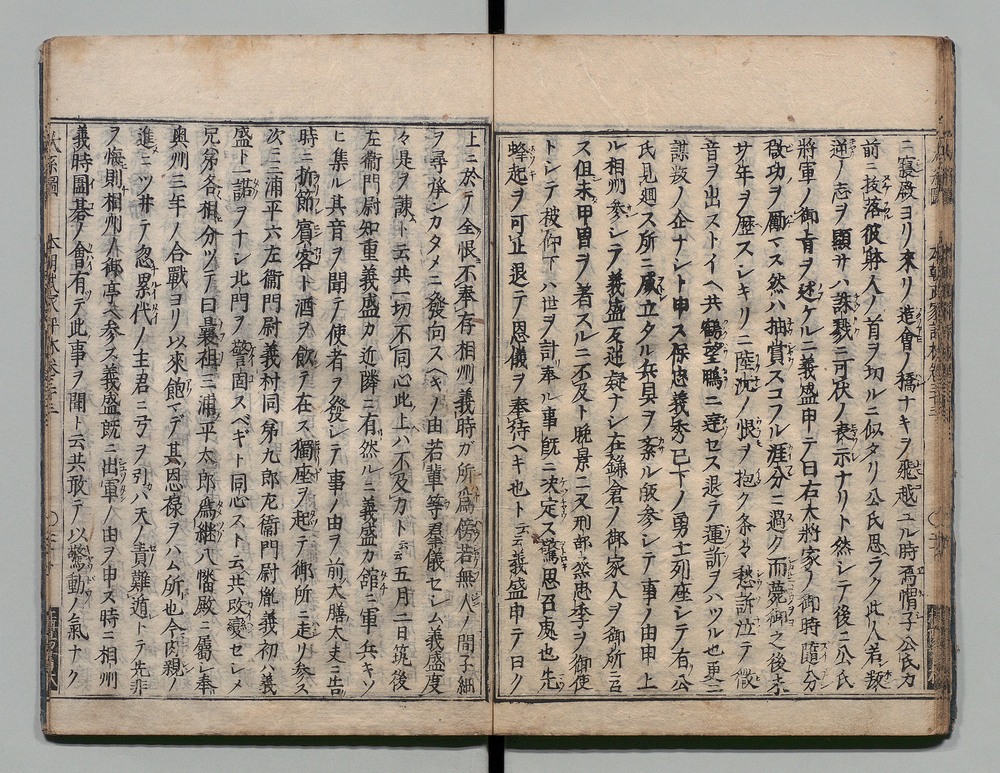 ニ寢殿ヨリ來リ造會ノ橋ナキヲ飛越ユル時烏帽子公氏カ
前ニ拔落彼躰人ノ首ヲ切ルニ似タリ公氏思ラク此人若類
逆ノ志ヲ顯サハ誅戮ニ可伏ノ表示ナリト然シテ後ニ公氏
將軍ノ御旨ヲ述ケルニ義盛申テ曰右大將家ノ御時隨分
微功ヲ勵マス然ハ抽賞スコフル涯分ニ過ク而薨御之後未
サ年ヲ歴スシキリニ陸沈ノ恨ヲ抱ク条々愁訴泣テ微
音ヲ出ストイヘ共鶴望鵬ニ達セス退テ運訴ヲハツル也更ニ
謀叛ノ企ナシト申ス保忠義秀已下ノ勇士列座シテ有公
氏見廻ス所ニ威立タル兵具ヲ紊ル皈参シテ事ノ由申上
ル相州参シテ義盛反逆疑ナシ在鎌倉ノ御家人ヲ御所ニ召
ス但未甲冑ヲ着スルニ不及ト晩景ニ又刑部烝忠季ヲ御使
トシテ被仰下ハ世ヲ計奉ル事既ニ決定ス驚思召處也先
蜂起ヲ可止退テ恩儀ヲ奉待ヘキ也ト云云義盛申テ曰ク
上ニ於テ全恨不奉存相州義時ガ所爲傍若無人ノ間子細
ヲ尋承ンカタメニ發向スヘキノ由若輩等羣儀セシム義盛度
々是ヲ諫ト云共一切不同心此上ハ不及力ト云云五月二日筑後
左衞門尉知重義盛カ近隣ニ有然ルニ義盛カ館ニ軍兵キソ
ヒ集ル其音ヲ聞テ使者ヲ發シテ事ノ由ヲ前大膳大夫ニ告
時ニ折節賓客ト酒ヲ飲テ在ス獨座ヲ起テ御所ニ走リ参ス
次ニ三浦平六左衞門尉義村同弟九郎左衞門尉胤義初ハ義
盛ト一諾ヲナシ北門ヲ警固スベキト同心スト云共改變セシメ
兄弟各相分ツテ曰曩祖三浦平太郎爲継八幡殿ニ屬シ奉
奥州三年ノ合戰ヨリ以來飽マデ其恩禄ヲハム所也今肉親ノ
進ニツ井テ忽累代ノ主君ニ弓ヲ引ハ天ノ責難遁トテ先非
ヲ悔則相州ノ御亭ヘ参ス義盛既ニ出軍ノ由ヲ申ス時ニ相州
義時圍碁ノ會有デ此事ヲ聞ト云共敢テ以驚動ノ氣ナク